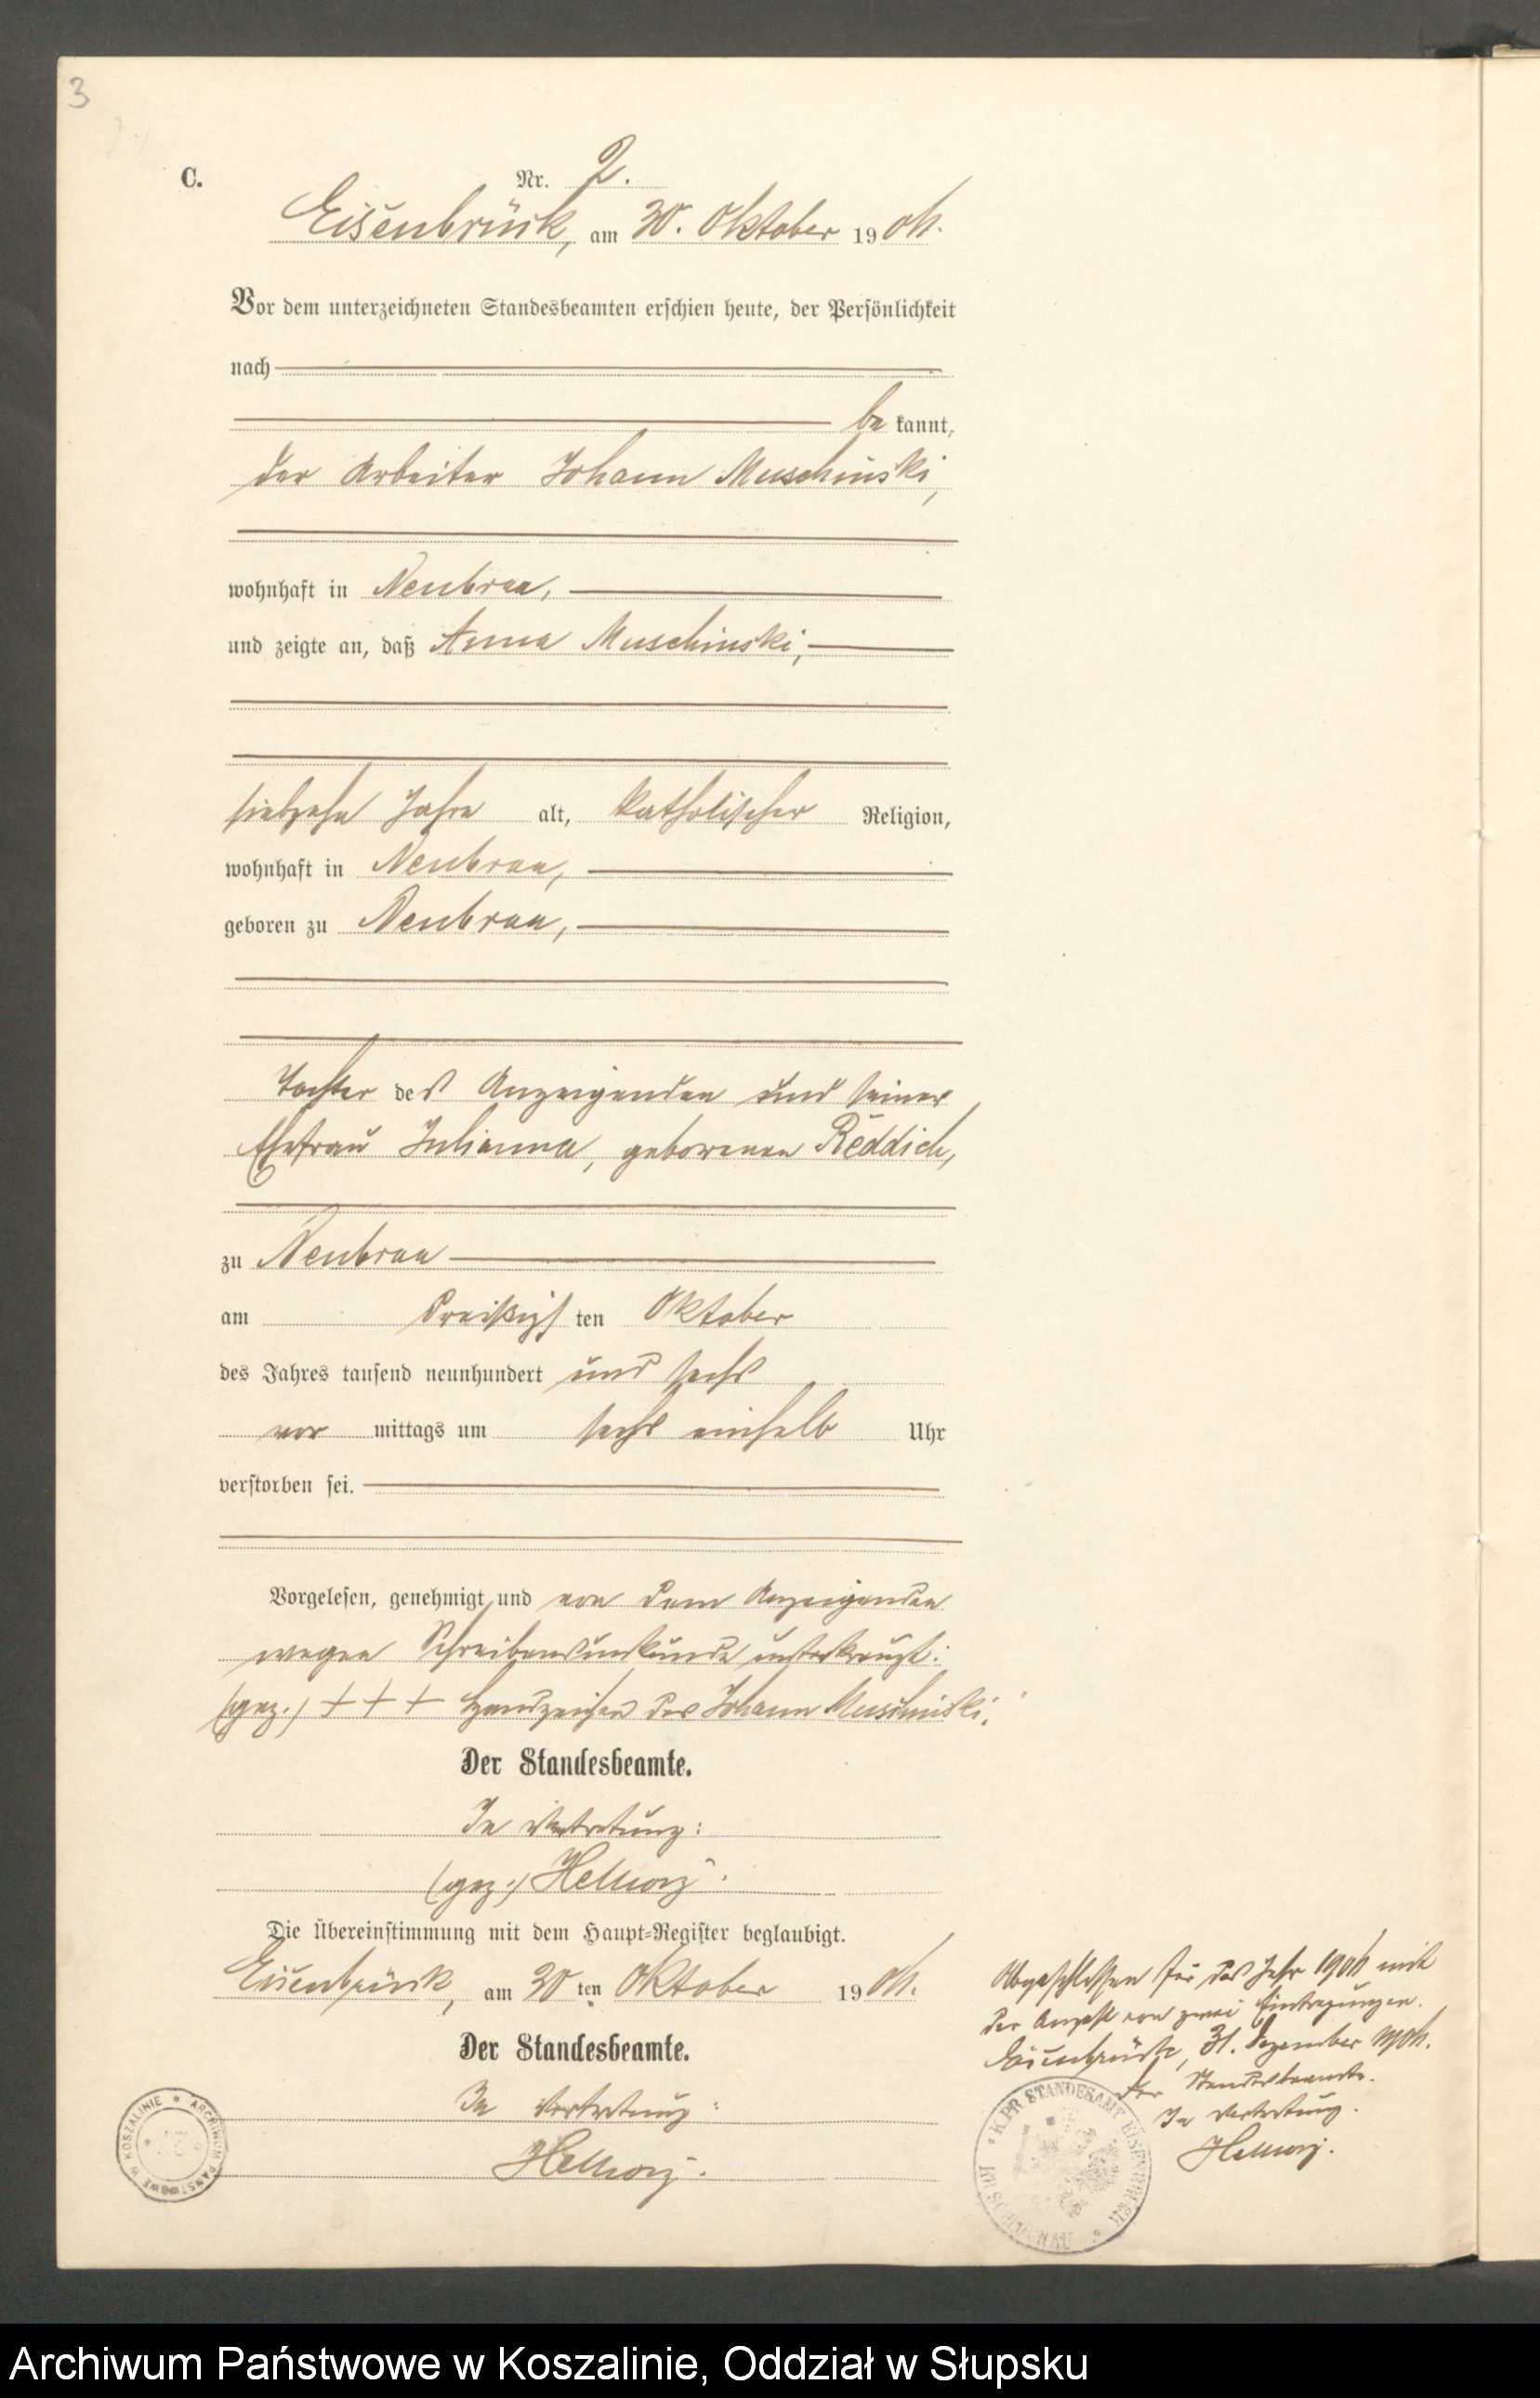 3
C.
Nr. 2.
Eisenbrück, am 30. Oktober 1906.
Vor dem unterzeichneten Standesbeamten erschien heute, der Persönlichkeit
nach
be kannt,
der Arbeiter Johann Muschinski,
wohnhaft in Neubraa,
und zeigte an, daß Anna Muschinski,
siebzehn Jahre alt, katholischer Religion,
wohnhaft in Neubraa,
geboren zu Neubraa,
Tochter des Anzeigenden und seiner
Ehefrau Julianna, geborenen Reddich,
zu Neubraa
am dreißigsten Oktober
des Jahres tausend neunhundert und sechs
vor mittags um sechs einhalb Uhr
verstorben sei.
Vorgelesen, genehmigt und von dem Anzeigenden
wegen Schreibensunkunde unterkreuzt:
(gez.) + + + Handzeichen des Johann Muschinski.
Der Standesbeamte.
In Vertretung:
(gez.)
Die Übereinstimmung mit dem Haupt-Register beglaubigt.
Eisenbrück, am 30 ten Oktober 1906.
Der Standesbeamte.
In Vertretung:
Abgeschlossen für das Jahr 1906 mit
der Anzahl von zwei Eintragungen.
Eisenbrück, 31. Dezember 1906.
Der Standesbeamte.
In Vertretung.
K. PR STANDESAMT EISENBRÜCK
ARCHIWUM PAŃSTWOWE W KOSZALINIE
Archiwum Państwowe w Koszalinie, Oddział w Słupsku